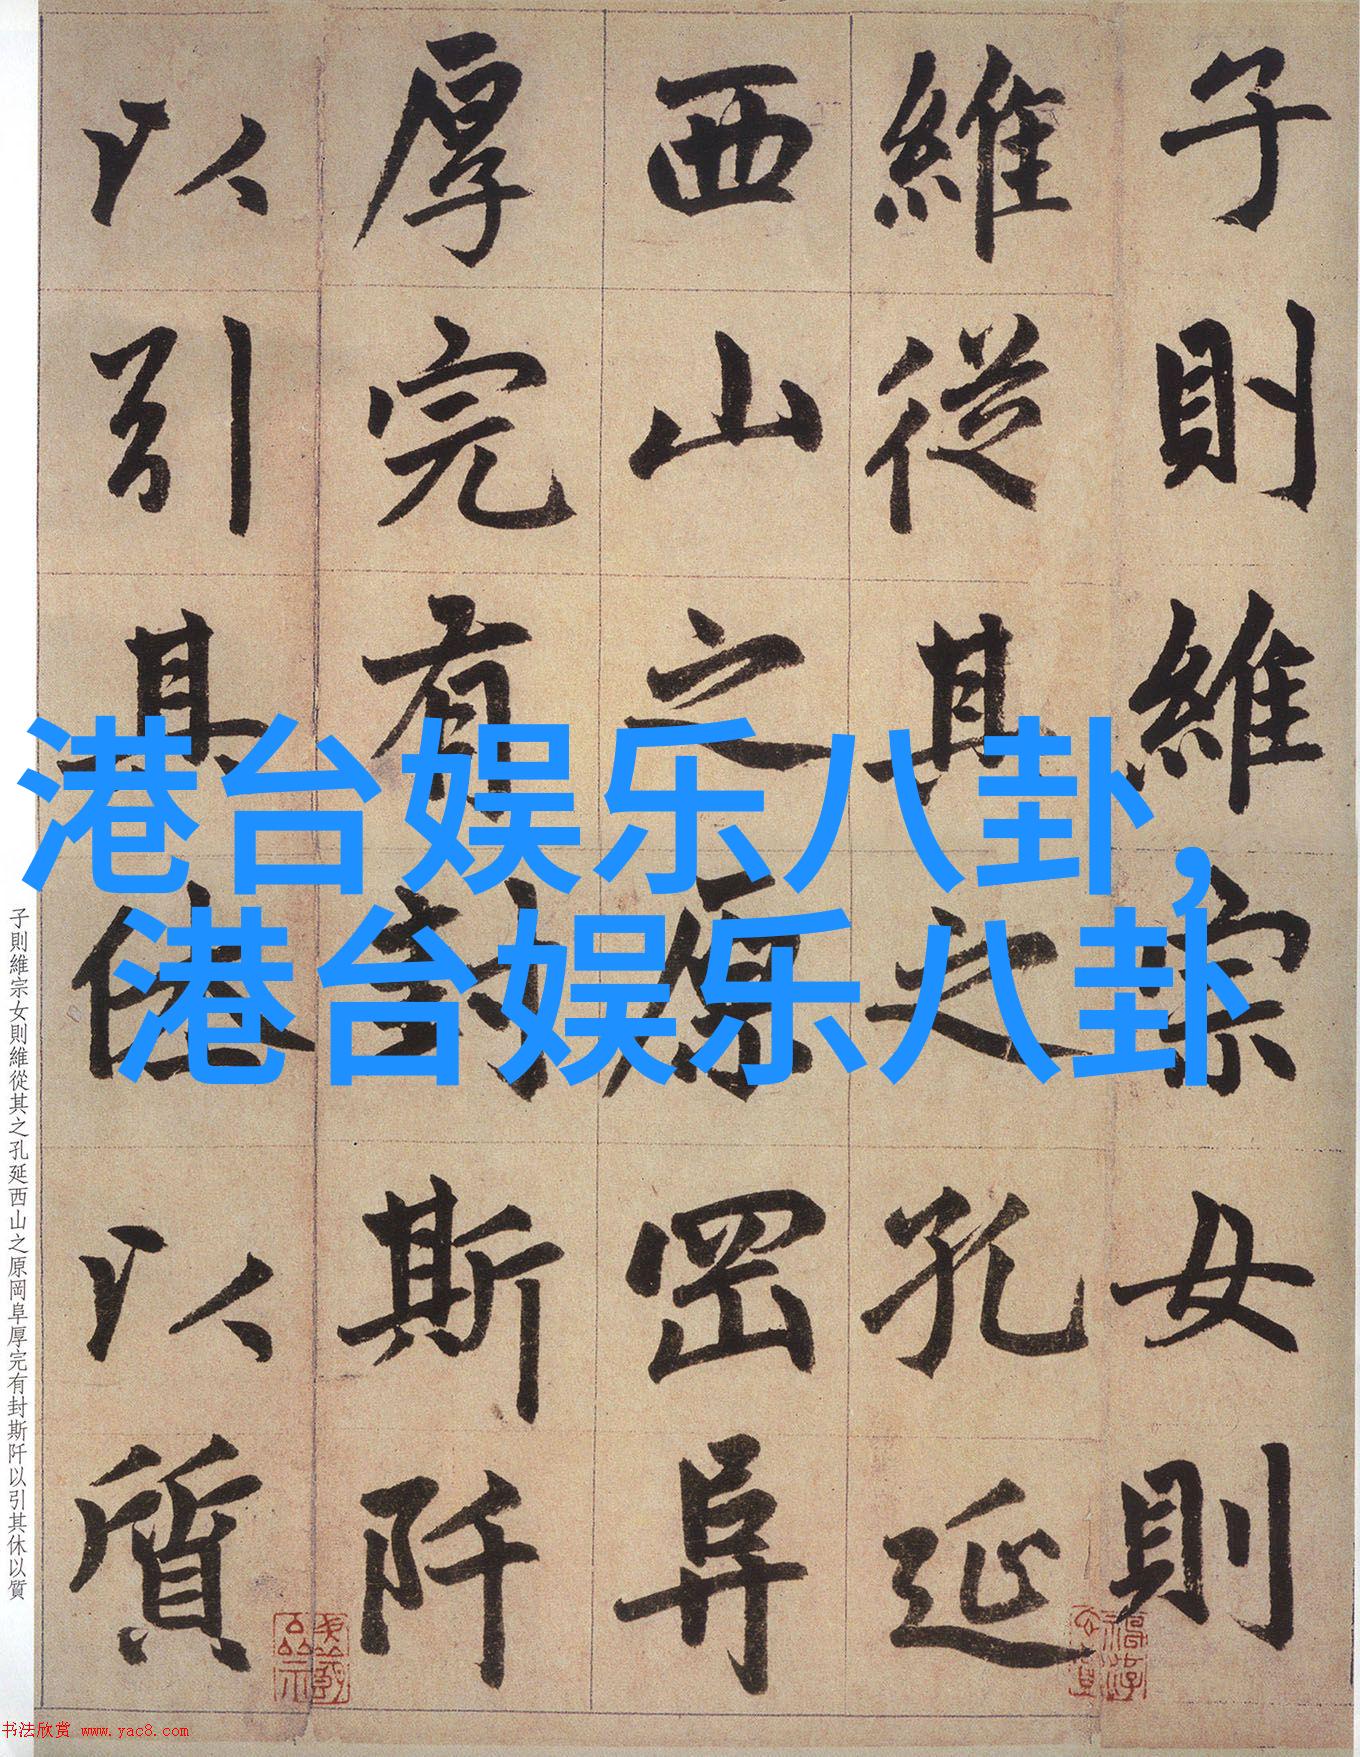 子則維宗女則
維從其之孔延
西山之原岡阜
厚完有封斯阡
以引其休以質
港台娱乐八卦,
港台娱乐八卦
子則維宗女則維從其之孔延西山之原岡阜厚完有封斯阡以引其休以質
书法欣赏 www.yac8.com